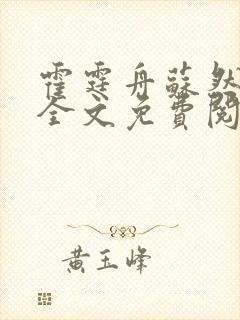 霍霆舟蘇然
全文免費閱
黃玉峰